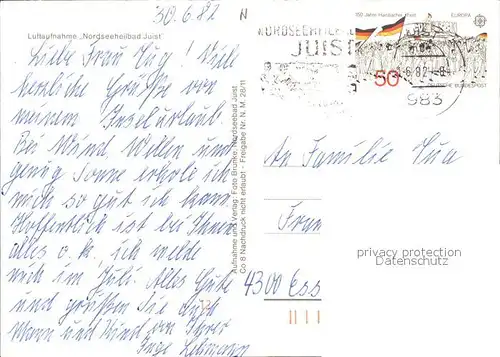 30.6.82 N
Luftaufnahme „Nordseeheilbad Juist"
Liebe Frau Cug! Viele
herzliche Grüße von
meinem Inselurlaub.
Bei Wind, Wellen und
genug Sonne erhole ich
mich so gut ich kann
Hoffentlich ist bei Ihnen
alles o.k., ich melde
mich im Juli. Alles Gute
und grüßen Sie auch
Mann und Kind von Ihrer
Inge Lehmann
Aufnahme und Verlag: Foto Brunke, Nordseebad Juist
Co 8 Nachdruck nicht erlaubt - Freigabe Nr. N. M. 28/11
150 Jahre Hambacher Fest EUROPA
JUIST
6.82-8
50 DEUTSCHE BUNDESPOST
983
An Familie
Frau
privacy protection
Datenschutz
4300 Ess